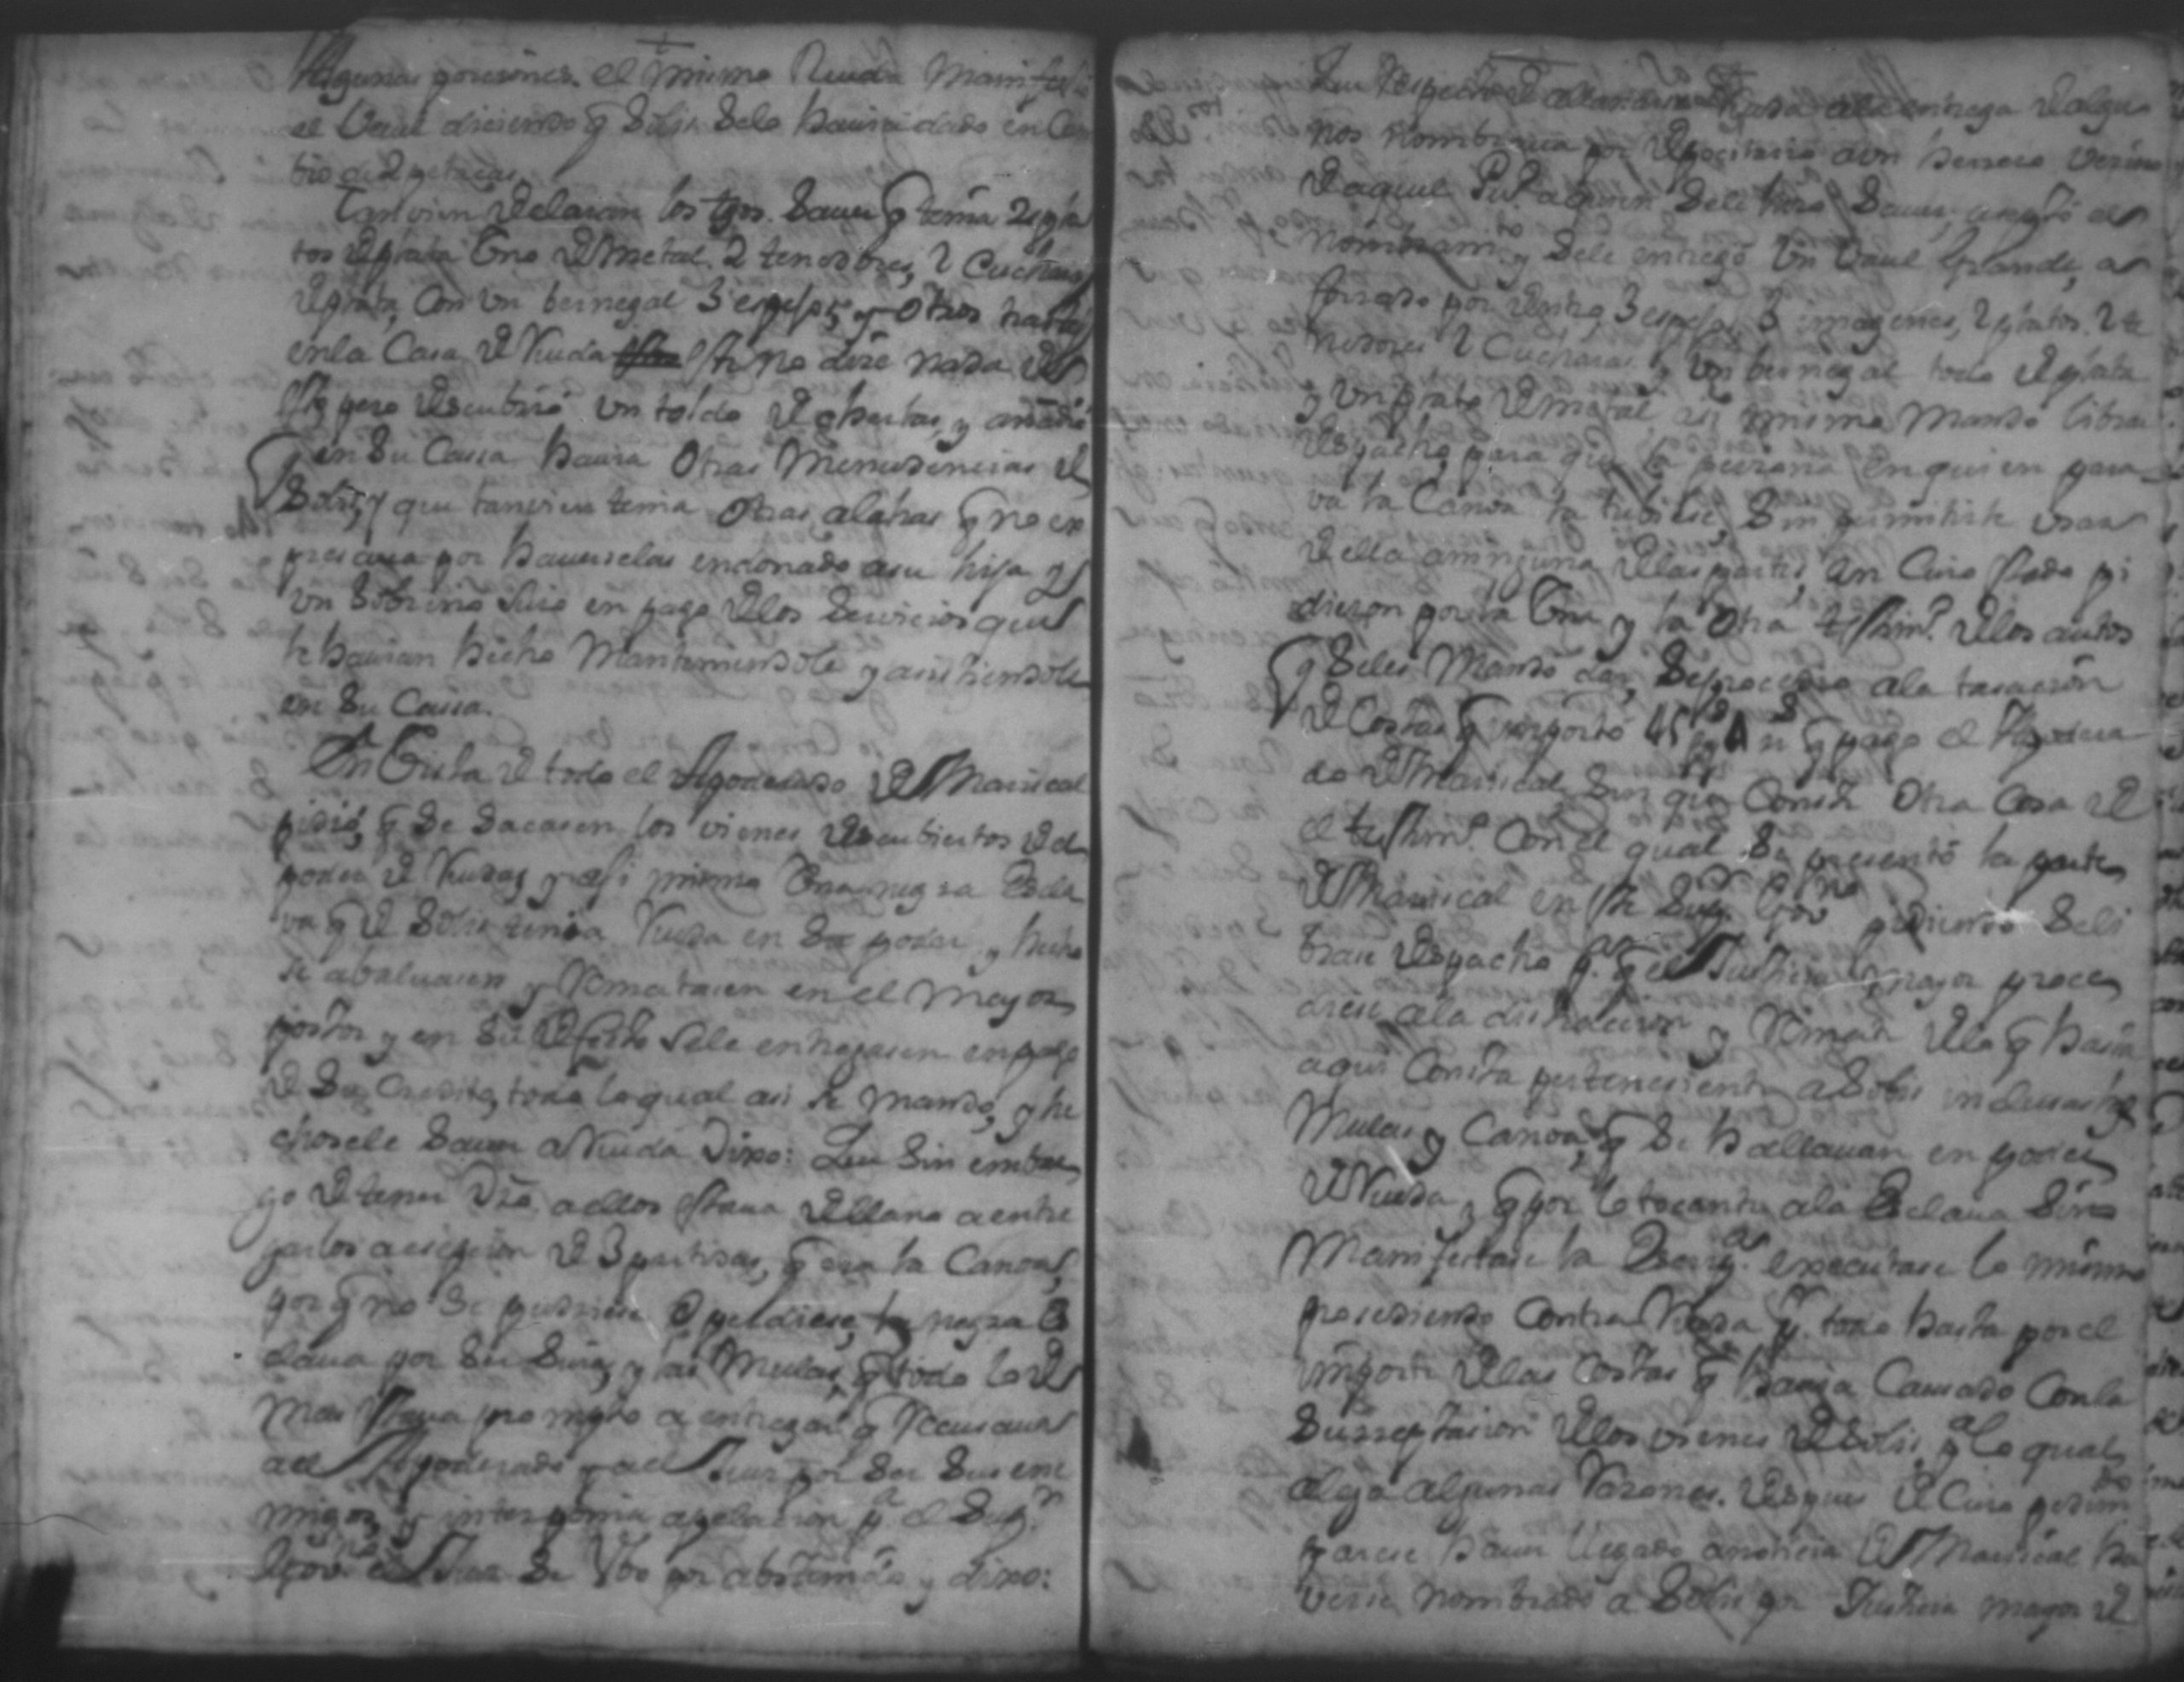 Algunas porciones. el mismo Rueda Manifestó
el Vaul diciendo q Solis selo havia dado en Cam
bio de 2 petacas.
Tanvien declaran los tgos. Saver q tenia 2 pla
tos de plata Uno de Metal. 2 tenedores, 2 Cucharas
de plata, Con Un bernegal 3 espejos, y Otros
en la Casa de Rueda este no dice nada de
esto pero descubrió Un toldo de y añadió
q en Su Cassa havia Otras Menudencias de
Solis, y que tanvien tenia Otras alahas q no ex
presava por haverselas endonado a su hija y
Un Sobrino Suio en pago de los Servicios que
le havian hecho Manteniendole y asistiendole
en Su Cassa.
En Vista de todo el Apoderado de Mariscal
pidió, q Se Sacasen los vienes descubiertos del
poder de Rueda, y asi mismo Una negra Escla
va q de Solis tenia Rueda en Su poder, y hecho
se abaluasen y Rematasen en el Mayor
postor y en Su defecto Sele entregasen en pago
de Su Credito, todo lo qual asi se Mandó, y he
chosele Saver a Rueda Dixo: Que Sin embar
go de tener Dro. a ellos estava llano a entre
garlos a ecepcion de 3 partidas, q era la Canoa,
por q no Se pudriese O perdiese, la negra Es
clava por Ser Suia, y las Mulas, q todo lo de
mas estava prompto a entregar q Recusava
a el Apoderado y a el Juez por Ser Sus ene
migos, y interponia apelacion pa. el Supr.
Govno. el Juez Se Ubo por abstenido y dixo:
Que Respecto a la entrega de algu
nos Nombrava por Depocitario a un Serrero Vecino
de aquel Pueblo a quien Sele hizo Saver, aceptó el
Nombramto. y Sele entregó Un Vaul Grande, a
forrado por dentro, 3 espejos, 3 imagenes, 2 platos. 2 te
nedores 2 Cucharas y Un bernegal todo de plata
y Un plato de Metal asi mismo Mandó librar
despacho, para que la persona en quien para
va la Canoa la tubiese, Sin permitirle Usar
de ella a ninguna de las partes, en Cuio estado pi
dieron por la Una y la Otra testimo. de los autos
q Seles Mandó dar, Se procedió a la tasacion
de Costas q importó 45 ps 4 rs q pagó el Apodera
do de Mariscal Sin que Conste Otra Cosa de
el testimo. Con el qual Se presentó la parte
de Mariscal en este Supr. Govno pidiendo Seli
brase despacho pa. q el Justicia Mayor proce
diese a la y Remate de lo q hasta
aqui Consta perteneciente a Solis inclusas las
Mulas y Canoa, q Se hallavan en poder
de Rueda, y q por lo tocante a la Esclava Sino
Manifestase la Escrip.ra executase lo mismo
procediendo Contra Rueda pr. todo hasta por el
importe de las Costas q havia Causado Con la
Surreptacion de los vienes de Solis, pa. lo qual
alega algunas Razones. despues de Cuio pedimto
parece haver llegado a noticia de Mariscal ha
verse Nombrado a Solis por Justicia mayor de